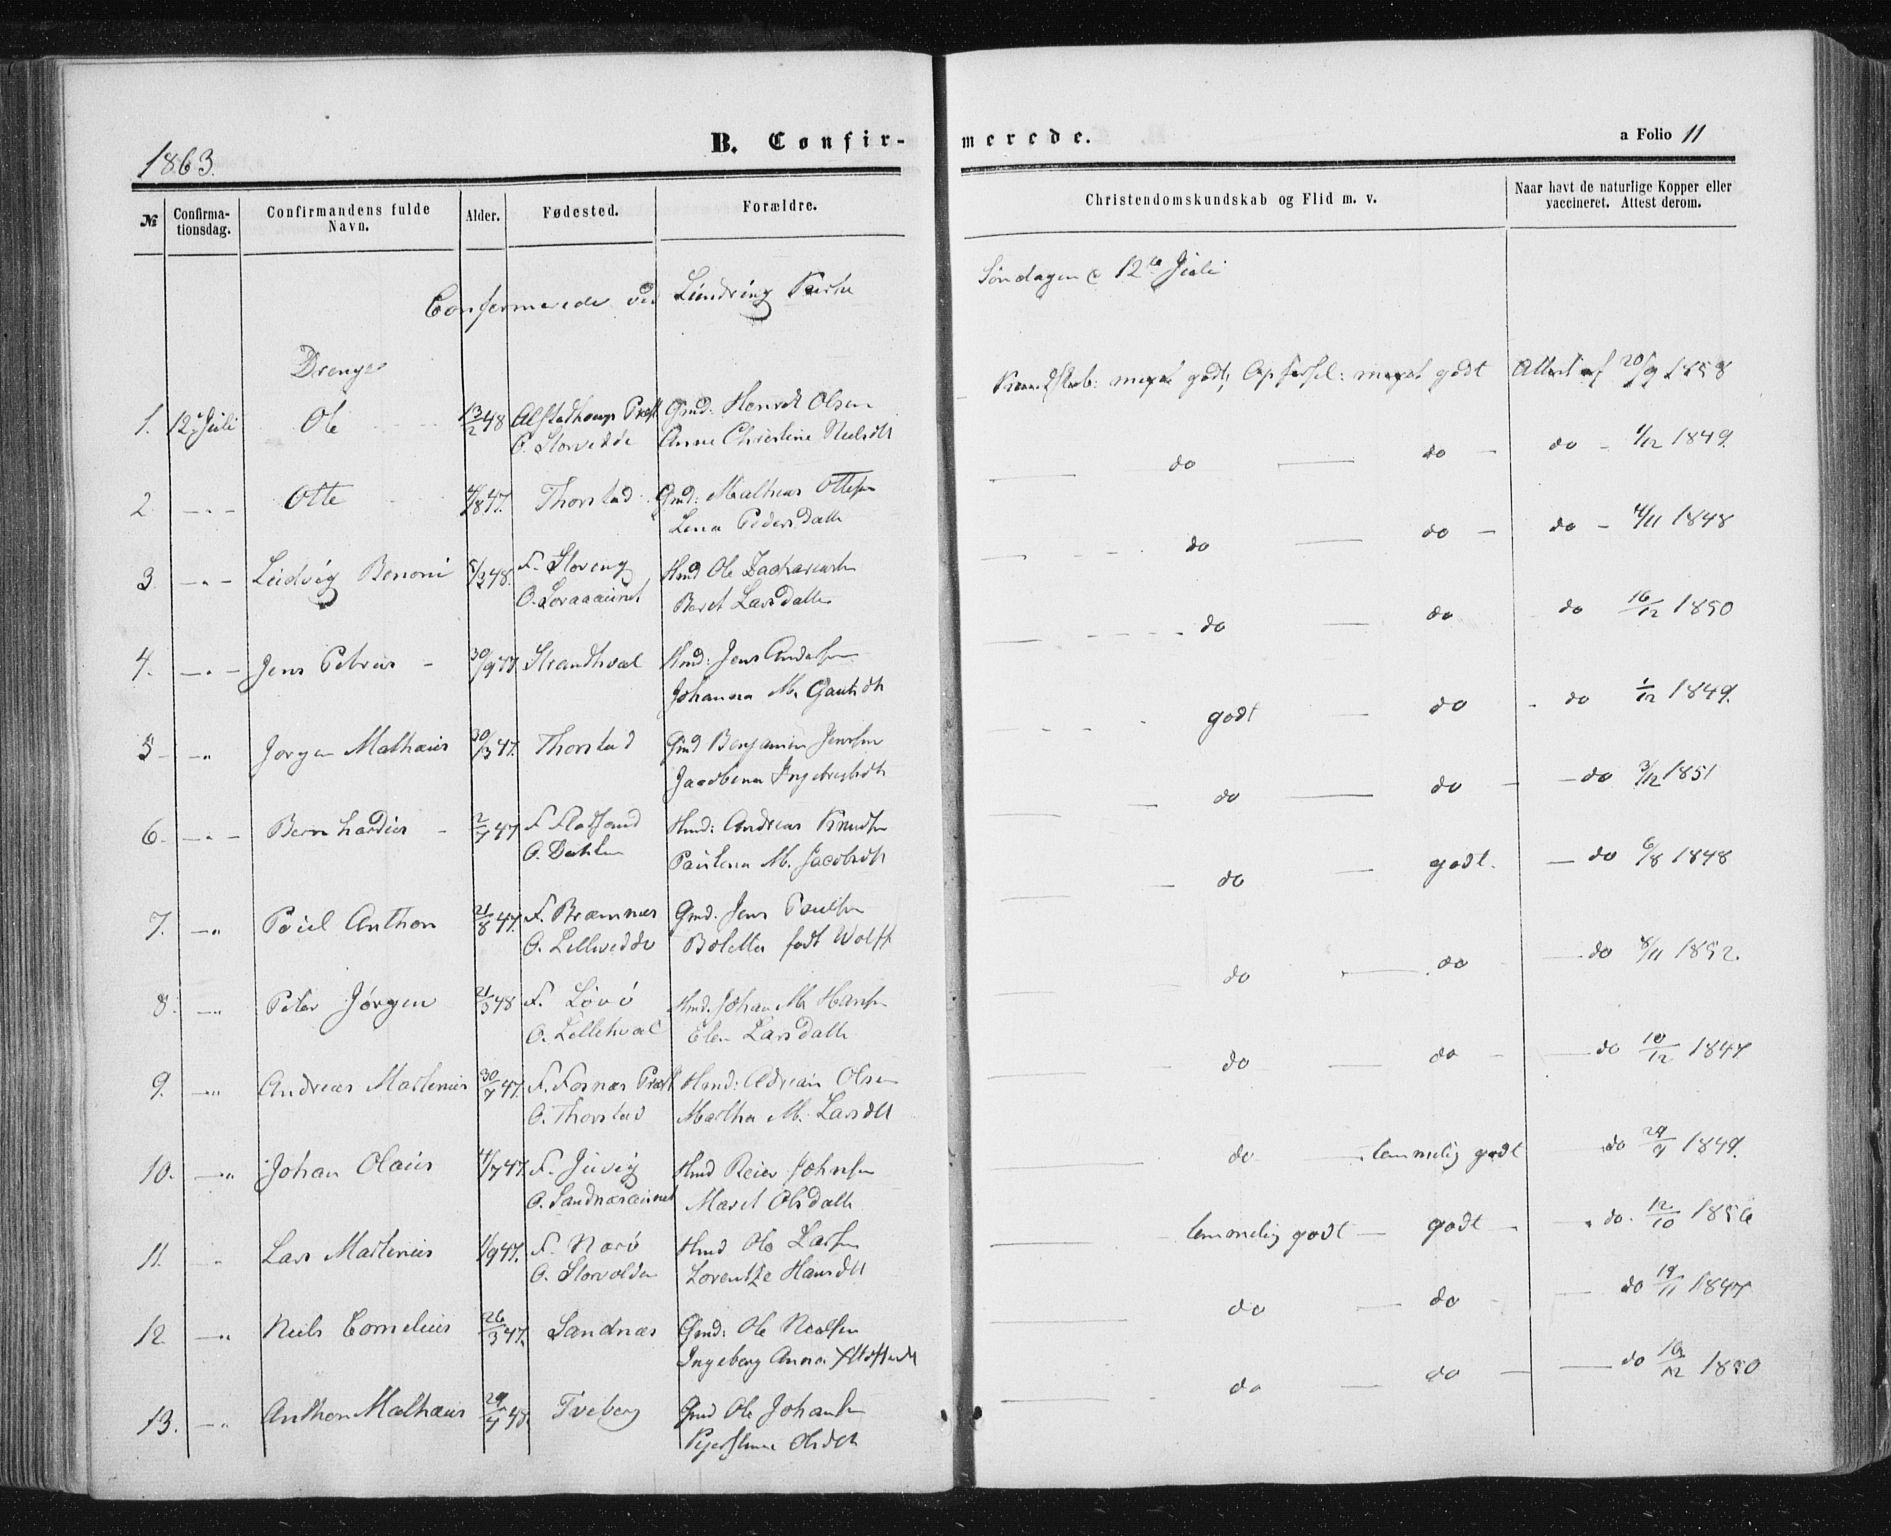 1863.
B. Confirmerede.
a Folio 11
№
Confirmationsdag.
Confirmandens fulde Navn.
Alder.
Fødested.
Forældre.
Christendomskundskab og Flid m. v.
Naar havt de naturlige Kopper eller vaccineret. Attest derom.
Confirmerede ved Kirke
Søndagen d 12te Juli
Drenge
1. 12te Juli Ole 13/2 48 Alstadhougs Præst. Gmd: Henrik Olsen
O. Storvedde Anne Christine Nielsdtt
Kundskab: meget godt, Opførsel: meget godt Attest af 20/9 1858
2. — " — Otte 4/8 47. Thorstad Gmd: Mathias Ottesen
Lena Pedersdatter
do do do 1/12 1849.
3. — " — Ludvig Benoni 5/3 48. F. Storeng Hmd Ole Zachariasen
O. Beret Larsdatter
do do do 4/11 1848
4. — " — Jens Petrus 30/9 47. Strandhval Hmd: Jens Andersen
Johanna M.
do do do 16/12 1850
5 — " Jørgen Mathæus 30/3 47. Thorstad Gmd Benjamin Jensen
Jacobina Ingebrigtsdtt
godt do do 1/12 1849.
6. — " — Bernhardus 2/7 47 F. Flatsand Hmd: Andreas Knudsen
O. Dahlen Paulena M. Jacobsdtt
do do do 3/12 1851
7. — " Poul Anthon 21/8 47. F. Bramnæs Gmd. Jens Poulsen
O. Lillevedde Boletta født Wolff
do godt. do 6/8 1848
8. — " Peter Jørgen 21/3 48 F. Løvø Hmd. Johan M. Hansen
O. Lillehval Elen Larsdatter
do do do 8/11 1852.
9. — " Andreas Martenius 30/7 47. F. Fornæs Præst Hmd: Adrian Olsen
O. Thorstad Martha M. Larsdtt
do do do 10/12 1847
10. — " Johan Olaus 4/7 47. F. Juvig Hmd Reier Johnsen
O. Maret Olsdatter
do temmelig godt do 29/9 1849.
11. " Lars Martenius 1/9 47. F. Nærø Hmd Ole Larsen
O. Storvolden Lorentze Hansdtt
temmelig godt godt do. 12/10 1856
12 — " Niels Cornelius 26/3 47. Sandnæs Gmd: Ole Nielsen
Ingeborg Anna
do do do 19/11 1847
13. — " Anthon Mathæus 29/4 47. Tveberg Gmd Ole Johansen
Kjerstina Olsdtt
do do do 16/12 1850